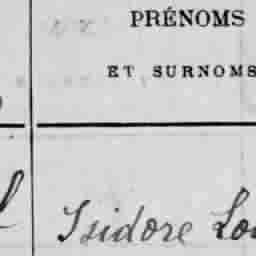 PRÉNOMS
ET SURNOMS
Isidore Lou